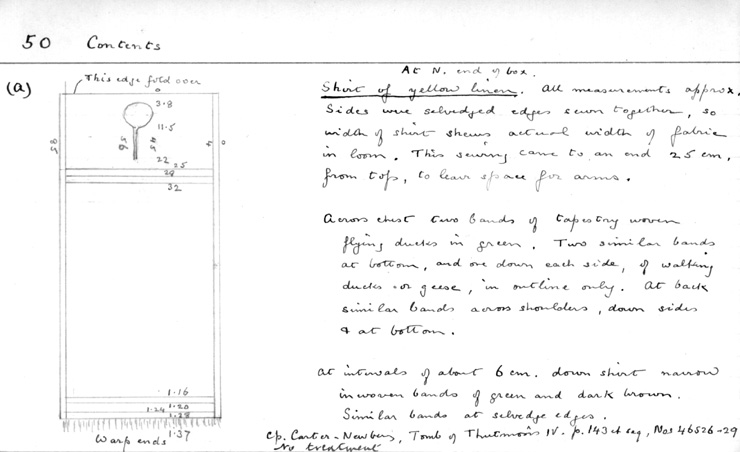 50 Contents
(a)
This edge fold over
At N. end of box.
Shirt of yellow linen. All measurements approx.
Sides were selvedged edges sewn together, so
width of shirt shews actual width of fabric
in loom. This sewing came to an end 25 cm.
from top, to leave space for arms.
Across chest two bands of tapestry woven
flying ducks in green. Two similar bands
at bottom, and one down each side, of walking
ducks or geese, in outline only. At back
similar bands across shoulders, down sides
& at bottom.
At intervals of about 6 cm. down shirt narrow
inwoven bands of green and dark brown.
Similar bands at selvedge edges.
cp. Carter-Newberry, Tomb of Thutmosis IV. p. 143 et seq, Nos 46526-29
No treatment
0
3.8
11.5
22
25
28
32
85
4
0
1.16
1.20
1.24
1.28
1.37
Warp ends